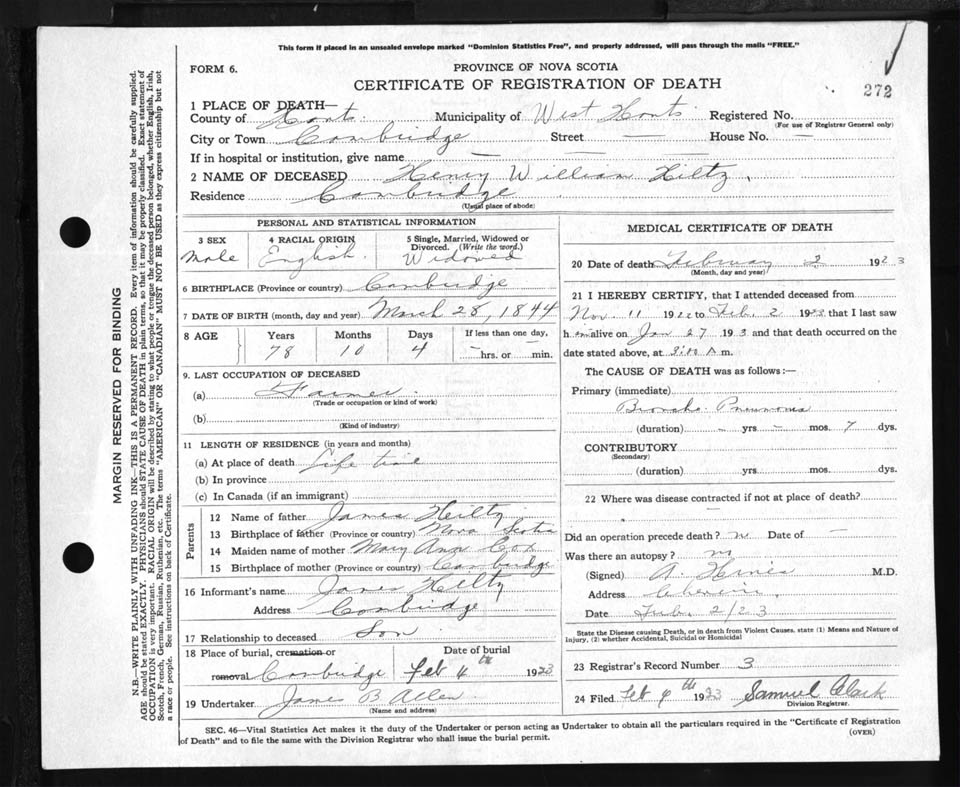 This form if placed in an unsealed envelope marked "Dominion Statistics Free", and properly addressed, will pass through the mails "FREE."
FORM 6.
PROVINCE OF NOVA SCOTIA
CERTIFICATE OF REGISTRATION OF DEATH
272
1 PLACE OF DEATH—
County of Hants Municipality of West Hants Registered No.
(For use of Registrar General only)
City or Town Cambridge Street — House No. —
If in hospital or institution, give name —
2 NAME OF DECEASED Henry William Hiltz
Residence Cambridge
(Usual place of abode)
PERSONAL AND STATISTICAL INFORMATION
3 SEX
Male
4 RACIAL ORIGIN
English
5 Single, Married, Widowed or Divorced. (Write the word.)
Widowed
6 BIRTHPLACE (Province or country) Cambridge
7 DATE OF BIRTH (month, day and year) March 28, 1844
8 AGE Years Months Days If less than one day,
78 10 4 — hrs. or — min.
9. LAST OCCUPATION OF DECEASED
(a) Farmer
(Trade or occupation or kind of work)
(b)
(Kind of industry)
11 LENGTH OF RESIDENCE (in years and months)
(a) At place of death Life time
(b) In province
(c) In Canada (if an immigrant)
Parents
12 Name of father James Heiltz
13 Birthplace of father (Province or country) Nova Scotia
14 Maiden name of mother Mary Ann Cox
15 Birthplace of mother (Province or country) Cambridge
16 Informant's name James Hiltz
Address Cambridge
17 Relationship to deceased Son
18 Place of burial, cremation or removal Cambridge
Date of burial
Feb 4th 1923
19 Undertaker James B Allen
(Name and address)
MEDICAL CERTIFICATE OF DEATH
20 Date of death February 2 1923
(Month, day and year)
21 I HEREBY CERTIFY, that I attended deceased from
Nov. 11 1922 to Feb. 2 1923 that I last saw
h im alive on Jan 27 1923 and that death occurred on
date stated above, at 3:00 A m.
The CAUSE OF DEATH was as follows:—
Primary (immediate)
Broncho. Pneumonia
(duration) — yrs — mos. 7 dys.
CONTRIBUTORY
(Secondary)
(duration) yrs. mos. dys.
22 Where was disease contracted if not at place of death?
Did an operation precede death? no Date of —
Was there an autopsy? no
(Signed) A. M.D.
Address
Date Feb. 2/23
State the Disease causing Death, or in death from Violent Causes, state (1) Means and Nature of
Injury, (2) whether Accidental, Suicidal or Homicidal
23 Registrar's Record Number 3
24 Filed Feb 9th 1923 Samuel Clark
Division Registrar.
SEC. 46—Vital Statistics Act makes it the duty of the Undertaker or person acting as Undertaker to obtain all the particulars required in the "Certificate of Registration
of Death" and to file the same with the Division Registrar who shall issue the burial permit.
(OVER)
MARGIN RESERVED FOR BINDING
N.B.—WRITE PLAINLY WITH UNFADING INK—THIS IS A PERMANENT RECORD. Every item of information should be carefully supplied.
AGE should be stated EXACTLY. PHYSICIANS should STATE CAUSE OF DEATH in plain terms, so that it may be properly classified. Exact statement of
OCCUPATION is very important. RACIAL ORIGIN will be described by stating to what people or tongue the deceased person belonged, whether English, Irish,
Scotch, French, German, Russian, Ruthenian, etc. The terms "AMERICAN" OR "CANADIAN" MUST NOT BE USED as they express citizenship but not
a race or people. See instructions on back of Certificate.